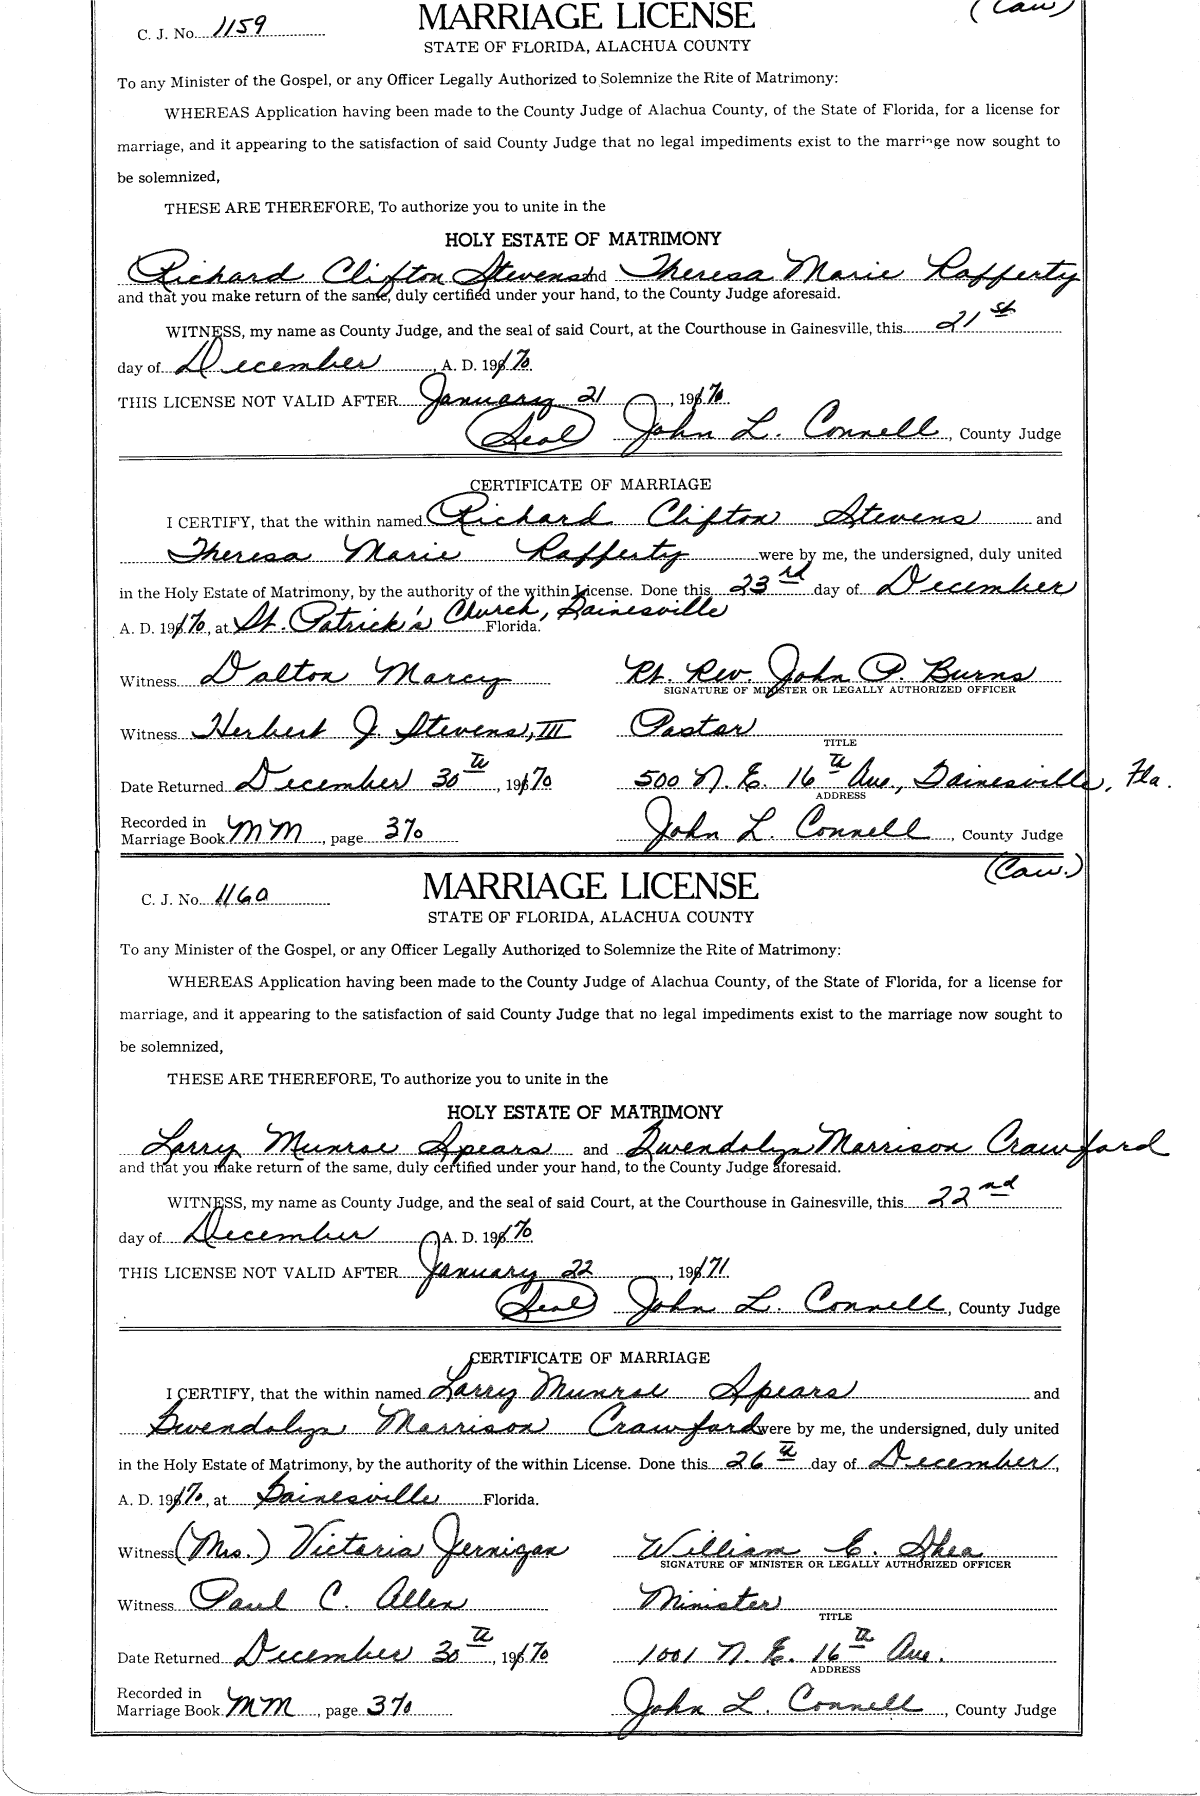 (Caw)
C. J. No. 1159
MARRIAGE LICENSE
STATE OF FLORIDA, ALACHUA COUNTY
To any Minister of the Gospel, or any Officer Legally Authorized to Solemnize the Rite of Matrimony:
WHEREAS Application having been made to the County Judge of Alachua County, of the State of Florida, for a license for
marriage, and it appearing to the satisfaction of said County Judge that no legal impediments exist to the marriage now sought to
be solemnized,
THESE ARE THEREFORE, To authorize you to unite in the
HOLY ESTATE OF MATRIMONY
Richard Clifton Stevens and Theresa Marie Rafferty
and that you make return of the same, duly certified under your hand, to the County Judge aforesaid.
WITNESS, my name as County Judge, and the seal of said Court, at the Courthouse in Gainesville, this 21st
day of December, A. D. 1970
THIS LICENSE NOT VALID AFTER January 21, 1970.
(Seal) John L. Connell, County Judge
CERTIFICATE OF MARRIAGE
I CERTIFY, that the within named Richard Clifton Stevens and
Theresa Marie Rafferty were by me, the undersigned, duly united
in the Holy Estate of Matrimony, by the authority of the within License. Done this 23rd day of December
A. D. 1970, at St. Patrick's Church, Gainesville Florida.
Witness Dalton Marcy Rt. Rev. John P. Burns
SIGNATURE OF MINISTER OR LEGALLY AUTHORIZED OFFICER
Witness Herbert J. Stevens, III Pastor
TITLE
Date Returned December 30th, 1970 500 N. E. 16th Ave., Gainesville, Fla.
ADDRESS
Recorded in
Marriage Book MM, page 370 John L. Connell, County Judge
(Caw.)
C. J. No. 1160
MARRIAGE LICENSE
STATE OF FLORIDA, ALACHUA COUNTY
To any Minister of the Gospel, or any Officer Legally Authorized to Solemnize the Rite of Matrimony:
WHEREAS Application having been made to the County Judge of Alachua County, of the State of Florida, for a license for
marriage, and it appearing to the satisfaction of said County Judge that no legal impediments exist to the marriage now sought to
be solemnized,
THESE ARE THEREFORE, To authorize you to unite in the
HOLY ESTATE OF MATRIMONY
Larry Munroe Spears and Gwendolyn Morrison Crawford
and that you make return of the same, duly certified under your hand, to the County Judge aforesaid.
WITNESS, my name as County Judge, and the seal of said Court, at the Courthouse in Gainesville, this 22nd
day of December, A. D. 1970
THIS LICENSE NOT VALID AFTER January 22, 1971.
(Seal) John L. Connell, County Judge
CERTIFICATE OF MARRIAGE
I CERTIFY, that the within named Larry Munroe Spears and
Gwendolyn Morrison Crawford were by me, the undersigned, duly united
in the Holy Estate of Matrimony, by the authority of the within License. Done this 26th day of December,
A. D. 1970, at Gainesville Florida.
Witness (Mrs.) Victoria Jernigan William E. Shea
SIGNATURE OF MINISTER OR LEGALLY AUTHORIZED OFFICER
Witness Paul C. Allen Minister
TITLE
Date Returned December 30th, 1970 1001 N. E. 16th Ave.
ADDRESS
Recorded in
Marriage Book MM, page 370 John L. Connell, County Judge